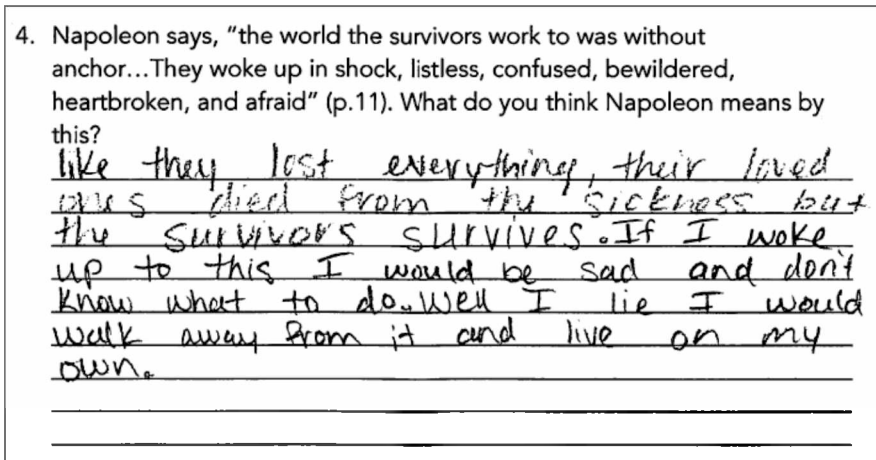 4. Napoleon says, "the world the survivors work to was without
anchor...They woke up in shock, listless, confused, bewildered,
heartbroken, and afraid" (p.11). What do you think Napoleon means by
this?
like they lost everything, their loved
ones died from the sickness but
the survivors survives. If I woke
up to this I would be sad and don't
know what to do. Well I lie I would
walk away from it and live on my
own.